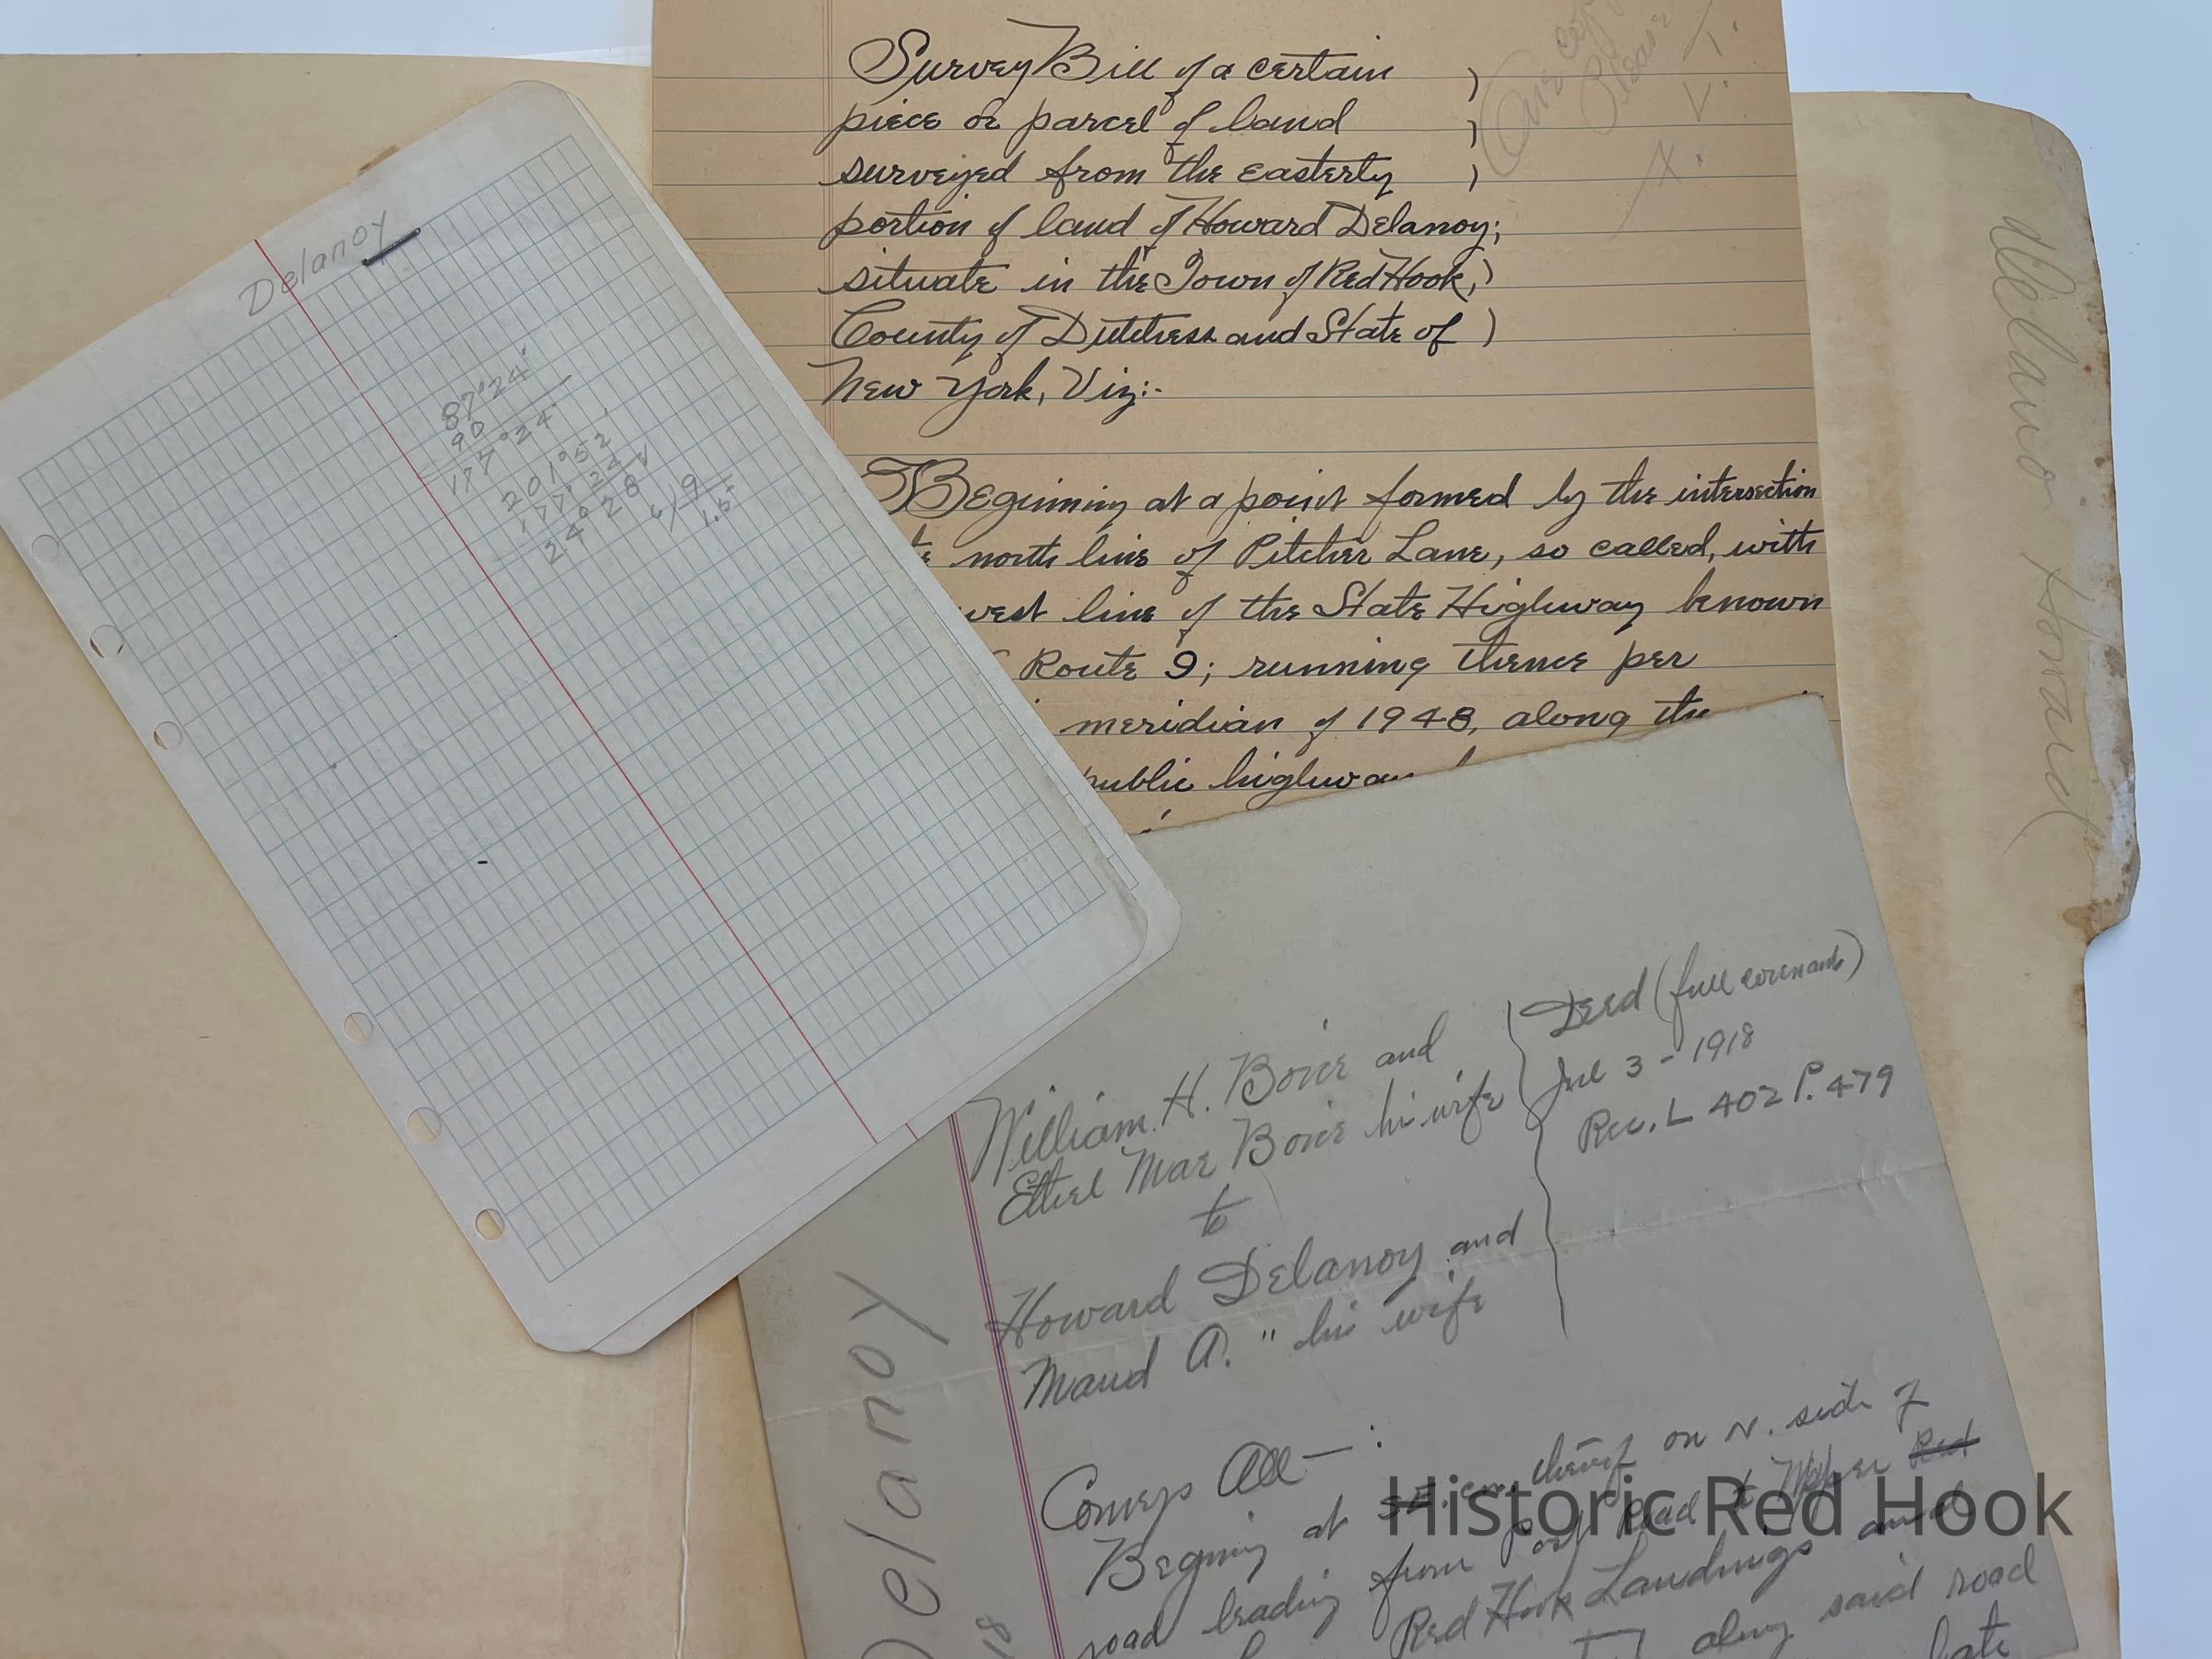 Survey Bill of a certain )
piece or parcel of land )
surveyed from the easterly )
portion of land of Howard Delanoy;
situate in the Town of Red Hook, )
County of Dutchess and State of )
New York, Viz:-
Beginning at a point formed by the intersection
north line of Pitcher Lane, so called, with
west line of the State Highway known
Route 9; running thence per
meridian of 1948, along the
public highway
One copy
Please
Delanoy
87°24'
90
177°24'
201°52'
177°24'
24°28'
6)9
1.5
Delano Howard
William H. Boice and
Ethel Mae Boice his wife
to
Howard Delanoy and
Maud A. " his wife
Deed (full covenant)
Jul 3 - 1918
Rec. L 402 P. 479
Conveys All — :
Begining at SE. cor. thereof on N. side of
road leading from Post Road to Upper Red
Red Hook Landings and
along said road
late
Delanoy
18
Historic Red Hook